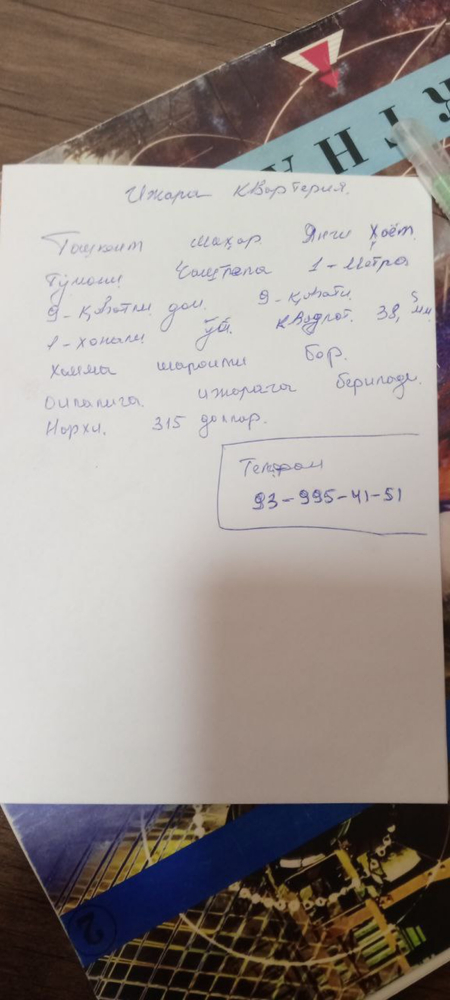 Ижара квартерия.
Тошкент шахар Янги Хаёт
тумани Чаштепа 1-Метро
9-қаватли дом. 9-қавати
1-хонали ўй. квадрат. 38,5 мм
хамма шароити бор.
оилалига ижарага берилади.
Нархи. 315 доллар.
Телефон
93-995-41-51
2